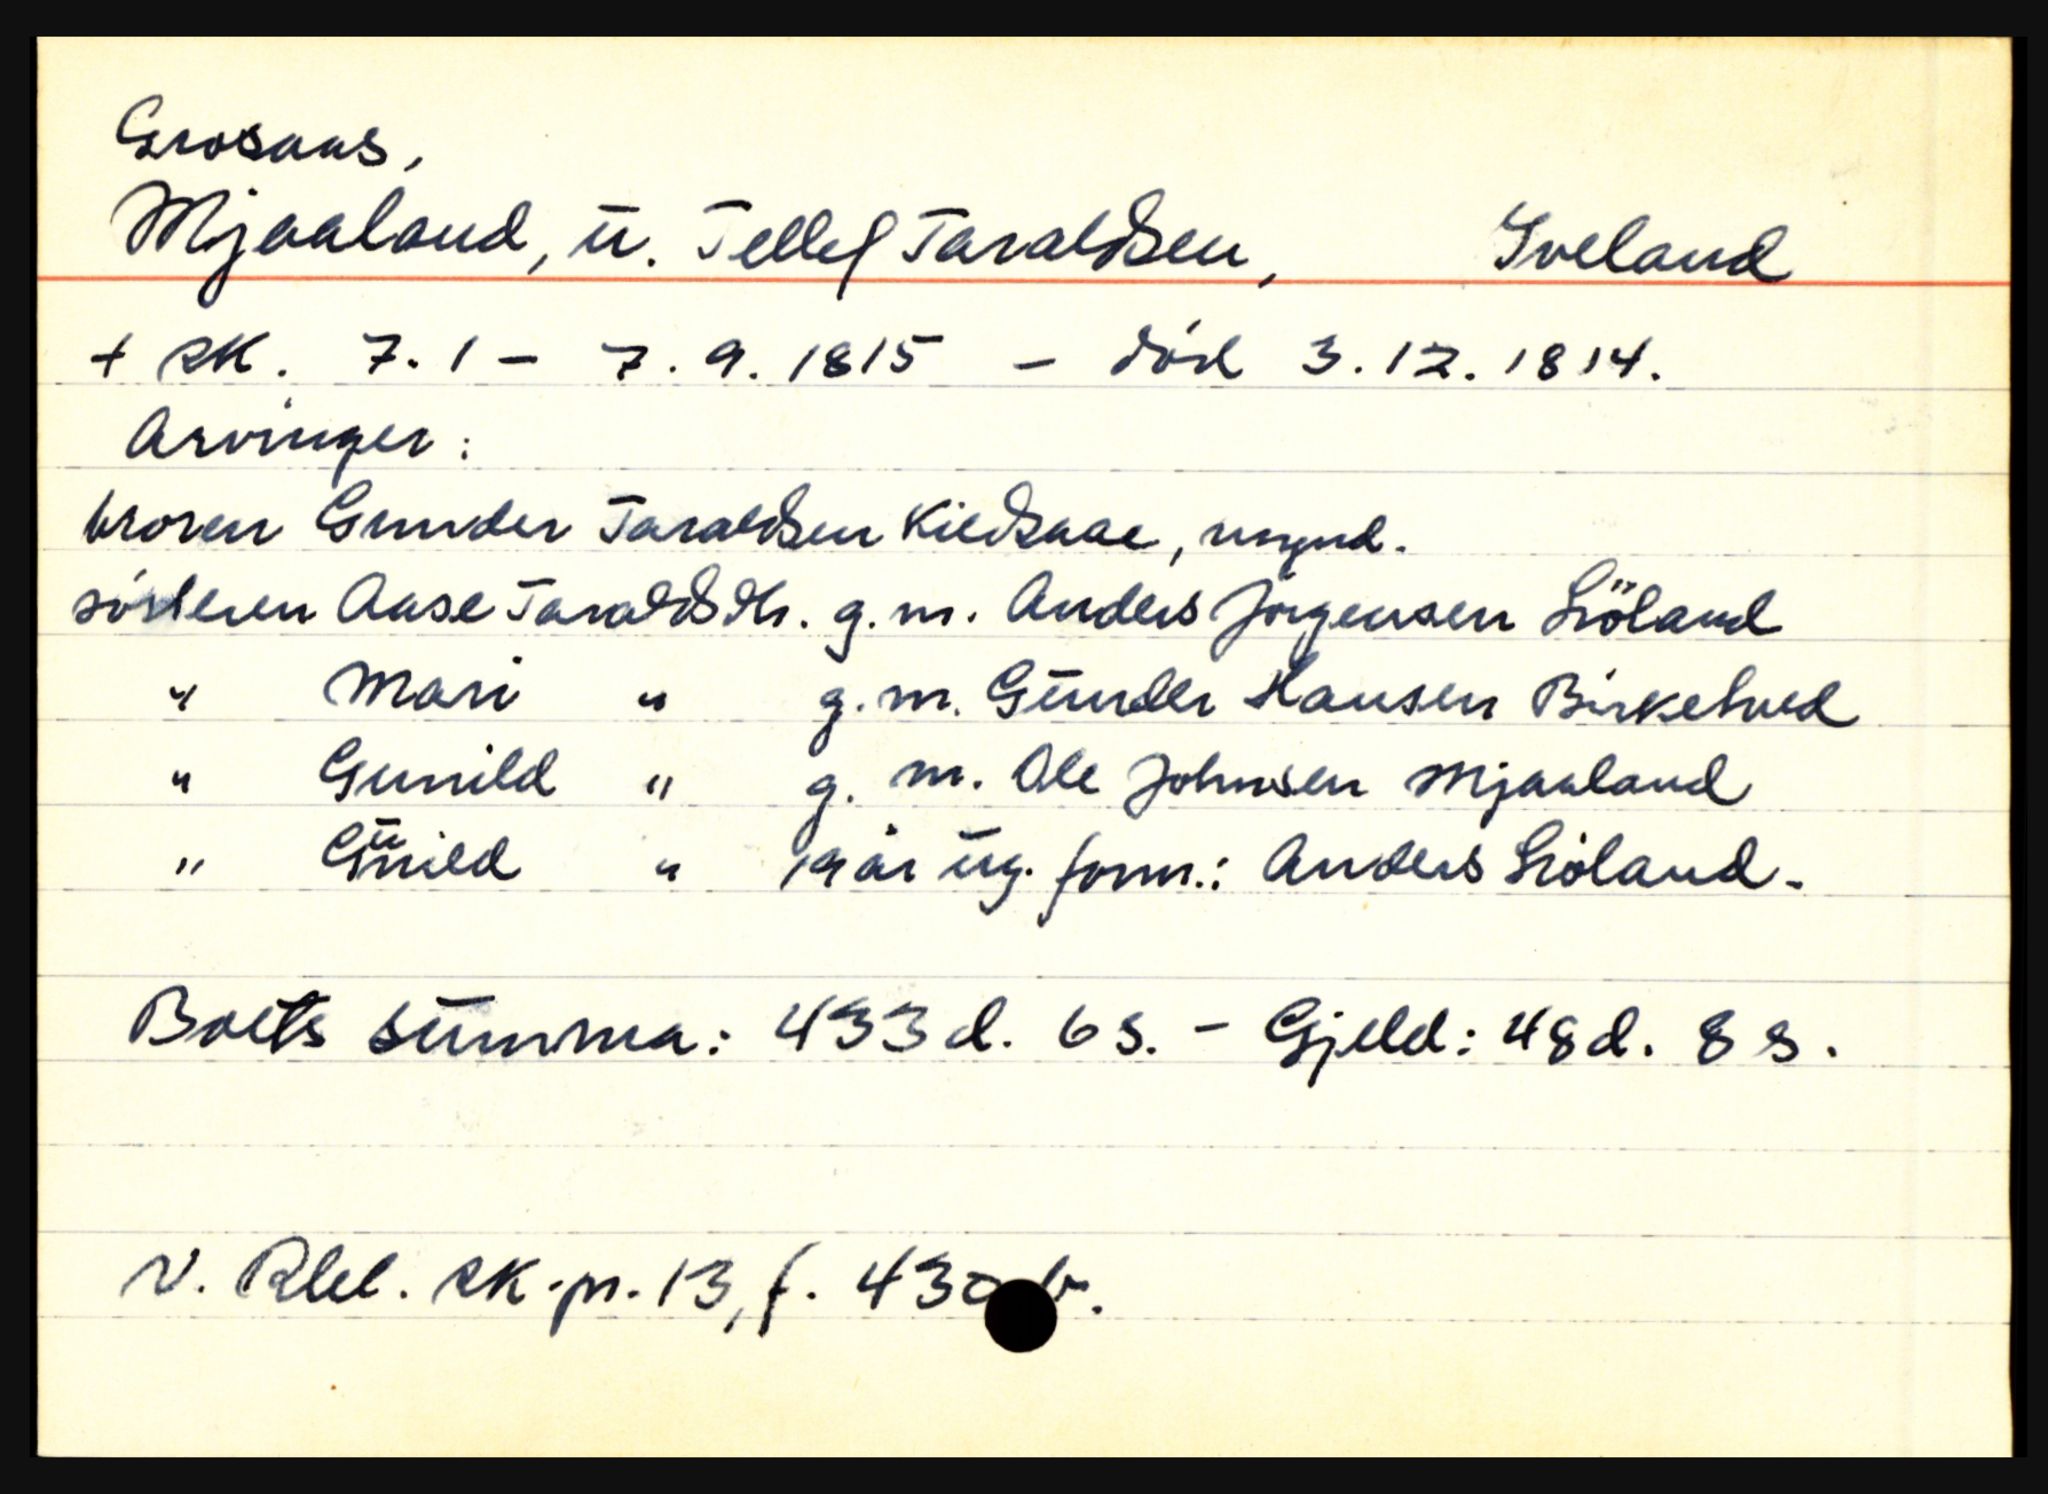 Grosaas,
Mjaaland, u. Tellef Taraldsen, Iveland
+ SK. 7.1 - 7.9.1815 - död 3.12.1814.
Arvinger:
broren Gunder Taraldsen Kildsaae, mynd.
sösteren Aase Taraldsdtr. g.m. Anders Jörgensen Liöland
" Mari " g.m. Gunder Hansen Birketved
" Gunild " g. m. Ole Johnsen Mjaaland
" Gunild " 19 år ug. form.: Anders Liöland.
Boets summa: 433 d. 6 s. - Gjeld: 48 d. 8 s.
N. Rbl. SK-pr. 13, f. 430 b.